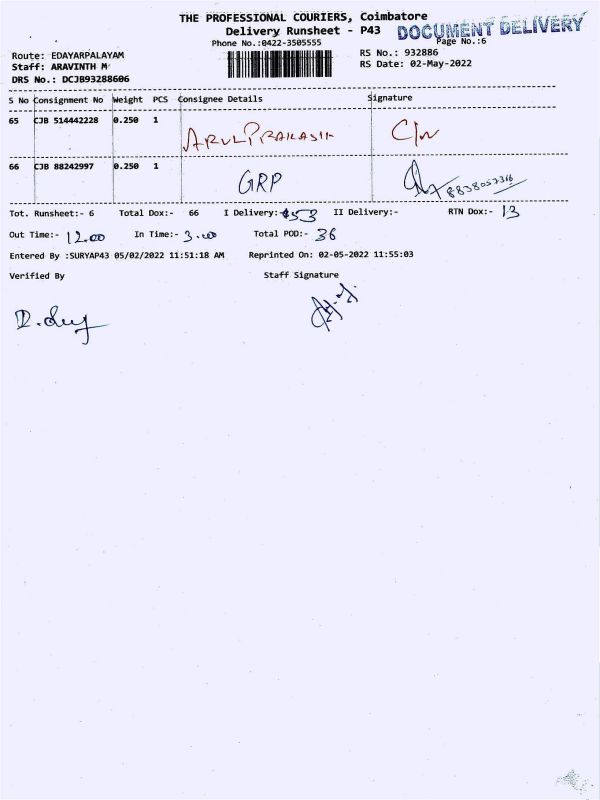 THE PROFESSIONAL COURIERS, Coimbatore
Delivery Runsheet - P43
DOCUMENT DELIVERY
Phone No.:0422-3505555
Page No.:6
Route: EDAYARPALAYAM
RS No.: 932886
Staff: ARAVINTH M
RS Date: 02-May-2022
DRS No.: DCJB93288606
S No Consignment No Weight PCS Consignee Details Signature
65 CJB 514442228 0.250 1 ARULPRAKASH
66 CJB 88242997 0.250 1 GRP
Tot. Runsheet:- 6 Total Dox:- 66 I Delivery:- 53 II Delivery:- RTN Dox:- 13
Out Time:- 12.00 In Time:- 3.00 Total POD:- 36
Entered By :SURYAP43 05/02/2022 11:51:18 AM Reprinted On: 02-05-2022 11:55:03
Verified By Staff Signature